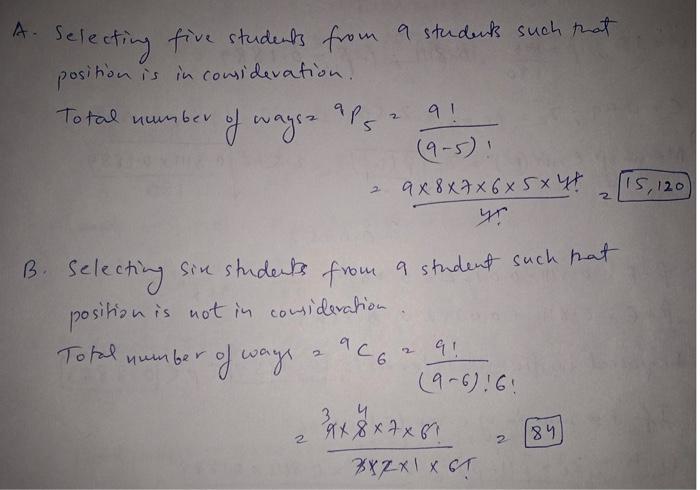 A. Selecting five students from 9 students such that
position is in consideration.
Total number of ways = ⁹P₅ = 9! / (9-5)!
= 9×8×7×6×5×4! / 4! = 15,120
B. Selecting six students from 9 student such that
position is not in consideration.
Total number of ways = ⁹C₆ = 9! / (9-6)!6!
= 9×8×7×6! / 3×2×1×6! = 84
3 4